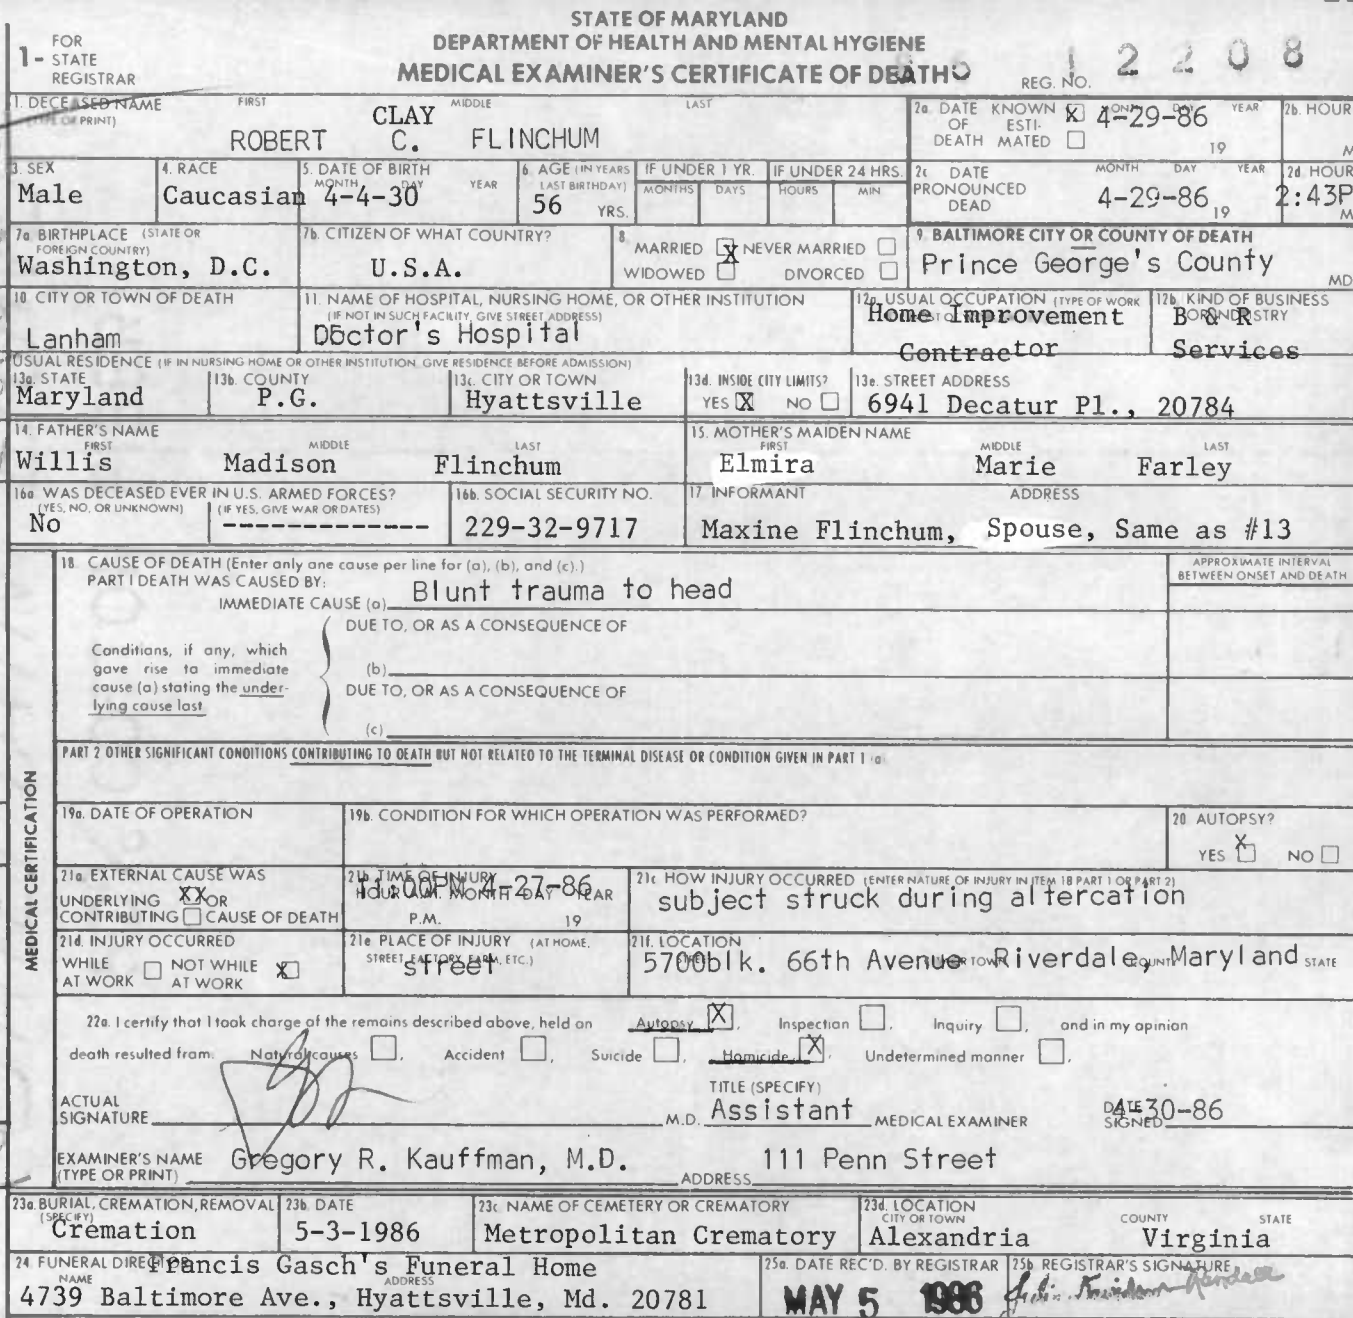 STATE OF MARYLAND
DEPARTMENT OF HEALTH AND MENTAL HYGIENE
MEDICAL EXAMINER'S CERTIFICATE OF DEATH
1- FOR STATE REGISTRAR
REG. NO. 12208
1. DECEASED NAME (TYPE OR PRINT) FIRST MIDDLE LAST
CLAY
ROBERT C. FLINCHUM
2a. DATE OF DEATH KNOWN X ESTIMATED MONTH DAY YEAR 19
4-29-86
2b. HOUR M
3. SEX
Male
4. RACE
Caucasian
5. DATE OF BIRTH MONTH DAY YEAR
4-4-30
6. AGE (IN YEARS LAST BIRTHDAY)
56 YRS.
IF UNDER 1 YR. MONTHS DAYS
IF UNDER 24 HRS. HOURS MIN
2c DATE PRONOUNCED DEAD MONTH DAY YEAR
4-29-86 19
2d HOUR
2:43P M
7a. BIRTHPLACE (STATE OR FOREIGN COUNTRY)
Washington, D.C.
7b. CITIZEN OF WHAT COUNTRY?
U.S.A.
8. MARRIED X NEVER MARRIED
WIDOWED DIVORCED
9. BALTIMORE CITY OR COUNTY OF DEATH
Prince George's County MD
10. CITY OR TOWN OF DEATH
Lanham
11. NAME OF HOSPITAL, NURSING HOME, OR OTHER INSTITUTION
(IF NOT IN SUCH FACILITY, GIVE STREET ADDRESS)
Doctor's Hospital
12a. USUAL OCCUPATION (TYPE OF WORK
Home Improvement
Contractor
12b. KIND OF BUSINESS OR INDUSTRY
B & R
Services
USUAL RESIDENCE (IF IN NURSING HOME OR OTHER INSTITUTION, GIVE RESIDENCE BEFORE ADMISSION)
13a. STATE
Maryland
13b. COUNTY
P.G.
13c. CITY OR TOWN
Hyattsville
13d. INSIDE CITY LIMITS?
YES X NO
13e. STREET ADDRESS
6941 Decatur Pl., 20784
14. FATHER'S NAME
FIRST MIDDLE LAST
Willis Madison Flinchum
15. MOTHER'S MAIDEN NAME
FIRST MIDDLE LAST
Elmira Marie Farley
16a WAS DECEASED EVER IN U.S. ARMED FORCES?
(YES, NO, OR UNKNOWN) (IF YES, GIVE WAR OR DATES)
No -------------
16b. SOCIAL SECURITY NO.
229-32-9717
17 INFORMANT ADDRESS
Maxine Flinchum, Spouse, Same as #13
MEDICAL CERTIFICATION
18. CAUSE OF DEATH (Enter only one cause per line for (a), (b), and (c).)
PART I DEATH WAS CAUSED BY:
IMMEDIATE CAUSE (a) Blunt trauma to head
APPROXIMATE INTERVAL
BETWEEN ONSET AND DEATH
DUE TO, OR AS A CONSEQUENCE OF
Conditions, if any, which
gave rise to immediate
cause (a) stating the under-
lying cause last
(b)
DUE TO, OR AS A CONSEQUENCE OF
(c)
PART 2 OTHER SIGNIFICANT CONDITIONS CONTRIBUTING TO DEATH BUT NOT RELATED TO THE TERMINAL DISEASE OR CONDITION GIVEN IN PART 1 (a)
19a. DATE OF OPERATION
19b. CONDITION FOR WHICH OPERATION WAS PERFORMED?
20 AUTOPSY?
YES X NO
21a EXTERNAL CAUSE WAS
UNDERLYING XX OR
CONTRIBUTING CAUSE OF DEATH
21b TIME OF INJURY
HOUR A.M. MONTH DAY YEAR
4-27-86
P.M. 19
21c HOW INJURY OCCURRED (ENTER NATURE OF INJURY IN ITEM 18 PART 1 OR PART 2)
subject struck during altercation
21d. INJURY OCCURRED
WHILE AT WORK NOT WHILE AT WORK X
21e PLACE OF INJURY (AT HOME, STREET, FACTORY, FARM, ETC.)
street
21f. LOCATION
5700blk. 66th Avenue Riverdale, Maryland STATE
22a. I certify that I took charge of the remains described above, held an Autopsy X, Inspection, Inquiry, and in my opinion
death resulted from: Natural causes, Accident, Suicide, Homicide X, Undetermined manner.
TITLE (SPECIFY)
ACTUAL SIGNATURE M.D. Assistant MEDICAL EXAMINER DATE SIGNED 4-30-86
EXAMINER'S NAME (TYPE OR PRINT) Gregory R. Kauffman, M.D. ADDRESS 111 Penn Street
23a. BURIAL, CREMATION, REMOVAL (SPECIFY)
Cremation
23b. DATE
5-3-1986
23c NAME OF CEMETERY OR CREMATORY
Metropolitan Crematory
23d. LOCATION
CITY OR TOWN COUNTY STATE
Alexandria Virginia
24. FUNERAL DIRECTOR
Francis Gasch's Funeral Home
NAME ADDRESS
4739 Baltimore Ave., Hyattsville, Md. 20781
25a. DATE REC'D. BY REGISTRAR
MAY 5 1986
25b REGISTRAR'S SIGNATURE